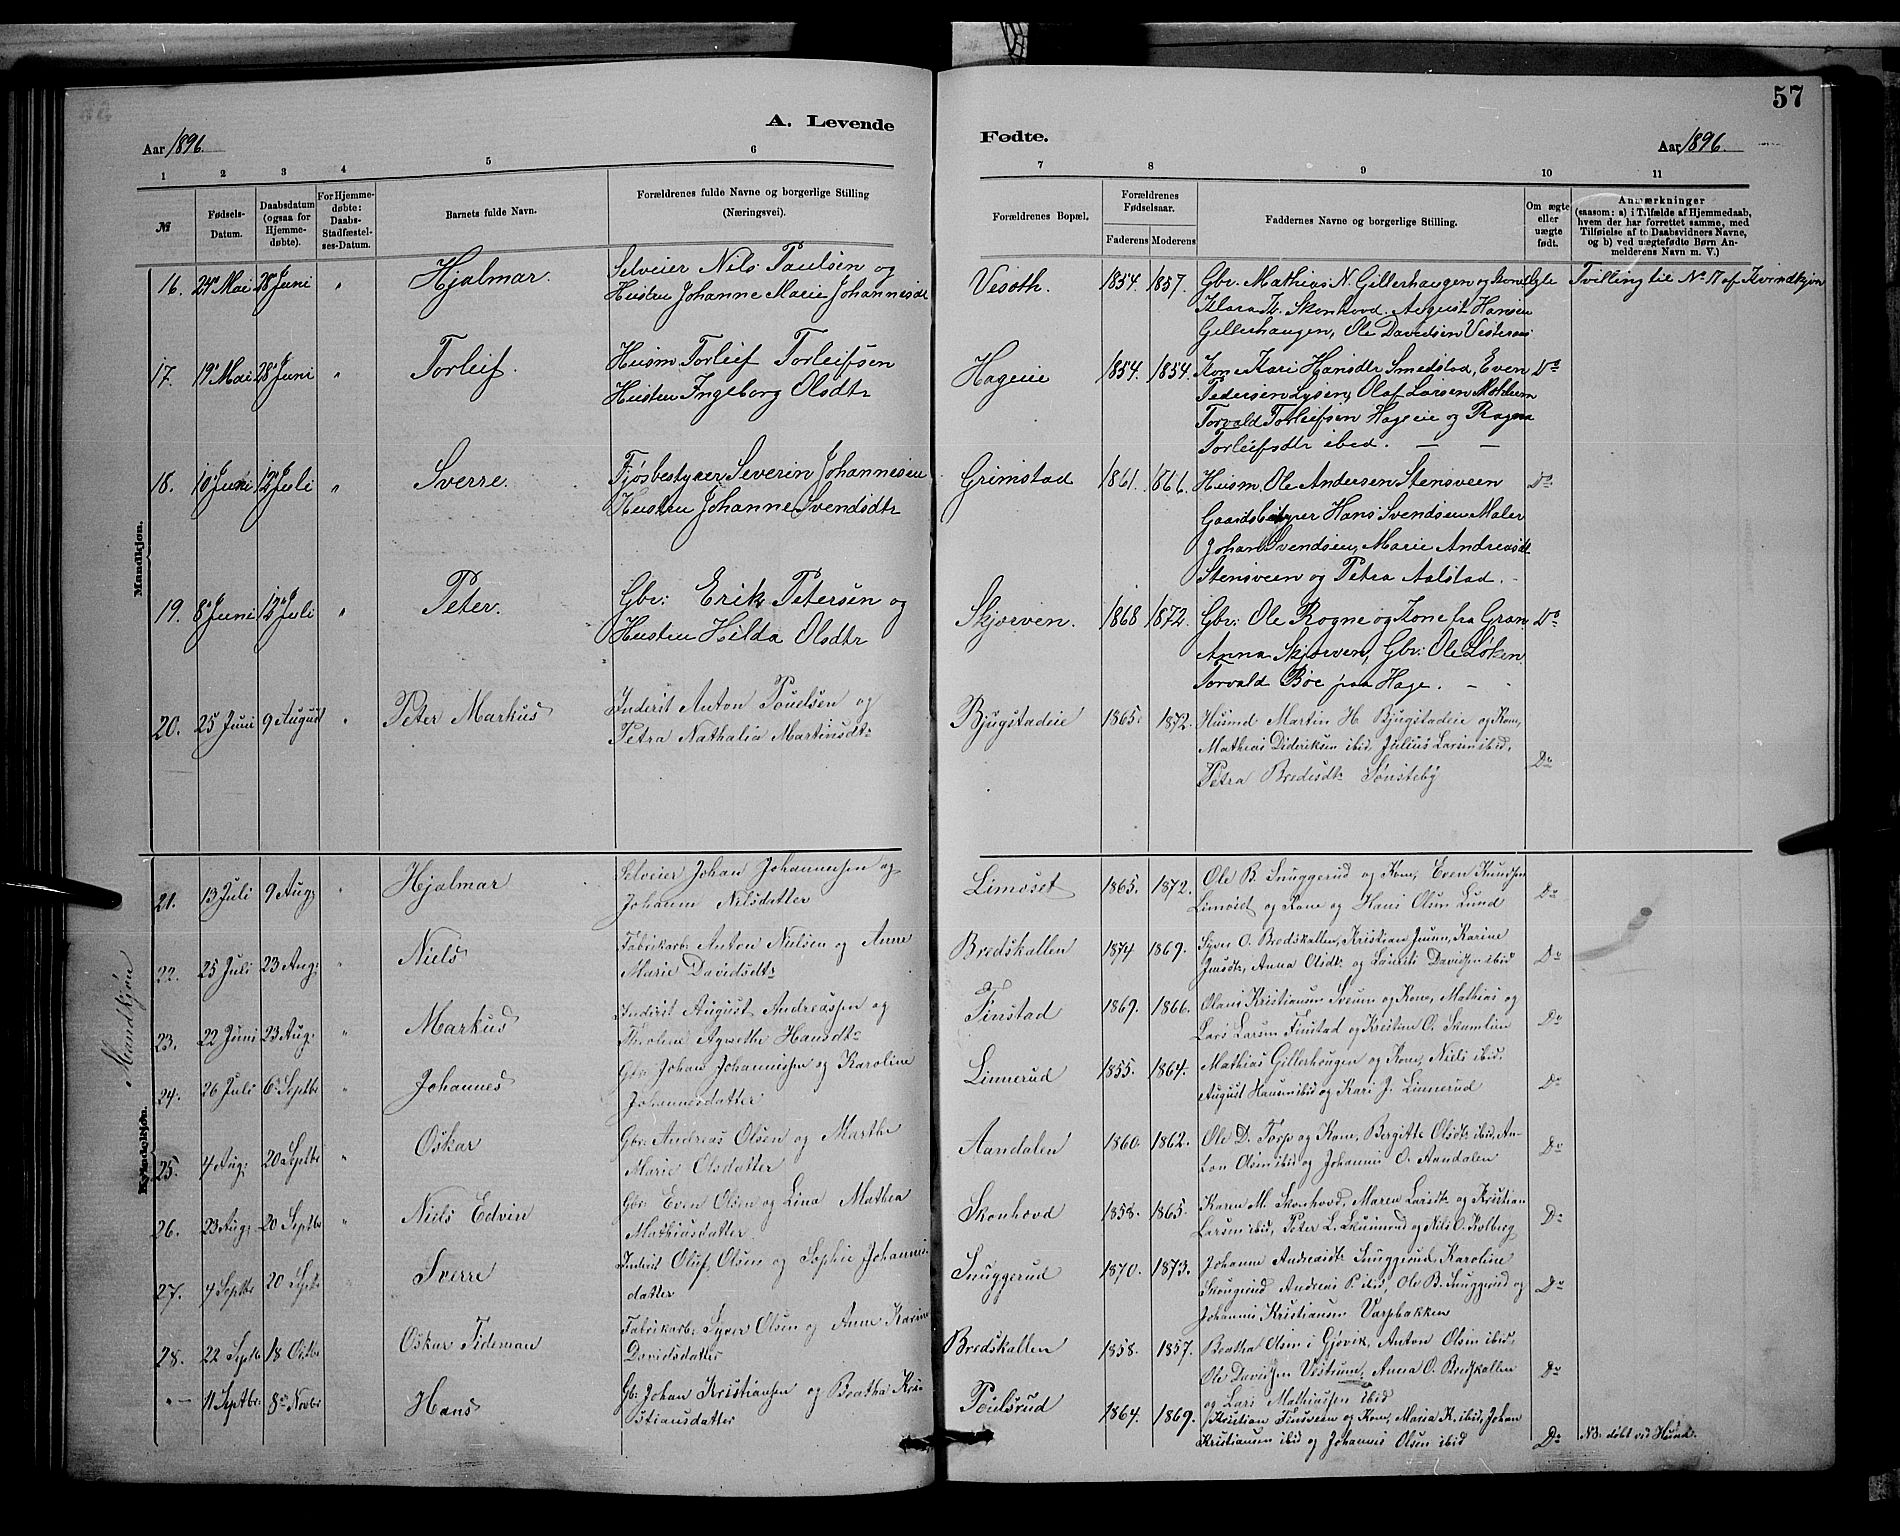 57
A. Levende
Fødte.
Aar 1896.
Aar 1896.
1 2 3 4 5 6 7 8 9 10 11
№
Fødsels-
Datum.
Daabsdatum
(ogsaa for
Hjemme-
døbte).
For Hjemme-
døbte:
Daabs-
Stadfæstel-
ses-Datum.
Barnets fulde Navn.
Forældrenes fulde Navne og borgerlige Stilling
(Næringsvei).
Forældrenes Bopæl.
Forældrenes
Fødselsaar.
Faderens Moderens
Faddernes Navne og borgerlige Stilling.
Om ægte
eller
uægte
født.
Anmærkninger
(saasom: a) i Tilfælde af Hjemmedaab,
hvem der har forrettet samme, med
Tilføielse af to Daabsvidners Navne,
og b) ved uægtefødte Børn An-
melderens Navn m. V.)
Mandkjøn.
16. 24 Mai 28 Juni " Hjalmar. Selveier Nils Paulsen og
Hustru Johanne Marie Johannesdt
Vesoth. 1854. 1857. Gbr. Mathias N. Gillerhaugen og Kone Egte Tvilling til No 17 af Kvindekjøn
Klara Skonhovd. August Hansen
Gillerhaugen, Ole Davidsen
17. 19 Mai 28 Juni " Torleif. Husm Torleif Torleifsen
Hustru Ingeborg Olsdtr
Hageie 1854. 1854. Kone Kari Hansdtr Smedstad, Even Do
Pedersen Lysen, Olaf Larsen
Torvald Torleifsen Hageie og Ragna
Torleifsdtr ibed. — —
18. 10 Juni 12 Juli " Sverre. Fjøsbestyrer Severin Johannesen
Hustru Johanne Svendsdtr
Grimstad 1861. 1866. Husm. Ole Andersen Stensveen Do
Gaardsbestyrer Hans Svendsen Maler
Johan Svendsen, Marie Andreasdt
Stensveen og Petra Aalstad.
19. 8 Juni 12 Juli " Peter. Gbr: Erik Petersen og
Hustru Hilda Olsdtr
Skjærven. 1868 1872. Gbr: Ole Rogne og Kone fra Gran Do
Anna Skjærven, Gbr: Ole Løken
Torvald Böe paa Hage. —
20. 25 Juni 9 August " Peter Markus Inderst Anton Pouelsen og
Petra Nathalia Martinsdtr
Bjugstadeie 1865. 1872. Husmd Martin H. Bjugstadeie og Kone,
Mathias Dideriksen ibid, Julius Larsen ibid,
Petra Bredesdtr Sønsteby Do
Mandkjön
Kvindekjøn.
21. 13 Juli 9 Aug: " Hjalmar Selveier Johan Johannessen og
Johanne Nilsdatter
Limoset 1865. 1872. Ole B. Snuggerud og Kone, Even Knudsen
Limoset og Kone og Hans Olsen Lund Do
22. 25 Juli 23 Aug: " Niels Fabrikarb: Anton Nielsen og Anne
Marie Davidsdtr
Bredskallen 1874 1869. Syver O. Bredskallen, Kristian Jensen, Karine
Jensdtr, Anna Olsdtr og Laurits Davidsen ibid Do
23. 22 Juni 23 Aug: " Markus Inderst August Andreassen og
Agnethe Hansdtr
Finstad 1869. 1866. Olaus Kristiansen Sveum og Kone, Mathias og
Lars Larsen Finstad og Kristine O. Skumlien Do
24. 26 Juli 6 Septbr " Johannes Gbr: Johan Johannessen og Karoline
Johannesdatter
Linnerud 1855. 1864. Mathias Gillerhaugen og Kone, Niels ibid,
August Hansen ibid og Kari J. Linnerud Do
25. 4 Aug: 20 Septbr " Oskar Gbr: Andreas Olsen og Marthe
Marie Olsdatter
Aandalen 1860. 1862. Ole D. Torp og Kone, Bergitte Olsdtr ibid, An-
ton Olsen ibid og Johannes O. Aandalen Do
26. 23 Aug: 20 Septbr " Niels Edvin Gbr: Even Olsen og Lina Mathea
Mathiasdatter
Skonhovd 1858. 1865. Karen M. Skonhovd, Maren Larsdtr og Kristian
Larsen ibid, Peter L. og Nils O. Kolberg Do
27. 4 Septbr 20 Septbr Sverre Inderst Oluf Olsen og Sophie Johannes-
datter
Snuggerud 1870. 1873. Johanne Andreasdtr Snuggerud, Karoline
Andreas P. ibid, Ole B. Snuggerud og Do
Johannes Kristiansen Varpbakken
28. 22 Septbr 18 Octbr Oskar Tideman Fabrikarb: Syver Olsen og Anne Karine
Davidsdatter
Bredskallen 1858. 1857. Beatha Olsen i Gjøvik, Anton Olsen ibid,
Ole Davidsen Vestrum, Anna O. Bredskallen Do
og Lars Mathiassen ibid
" — 11 Septbr: 8 Novbr Hans Gbr: Johan Kristiansen og Beatha Kri-
stiansdatter
Poulsrud 1864. 1869. Kristian Finsveen og Kone, Maria K. ibid, Johan
Kristiansen ibid og Johannes Olsen ibid Do NB. døbt ved Hund.